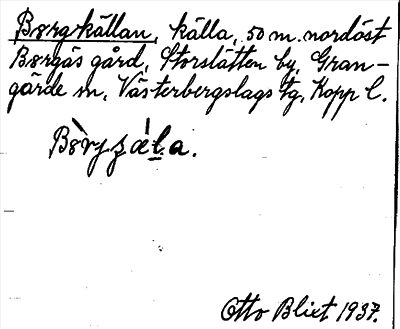 Bergkällan, källa, 50 m. nordöst
Bergås gård, Storslätten by, Gran-
gärde sn, Västerbergslags tg, Kopp l.
Otto Blixt 1937.